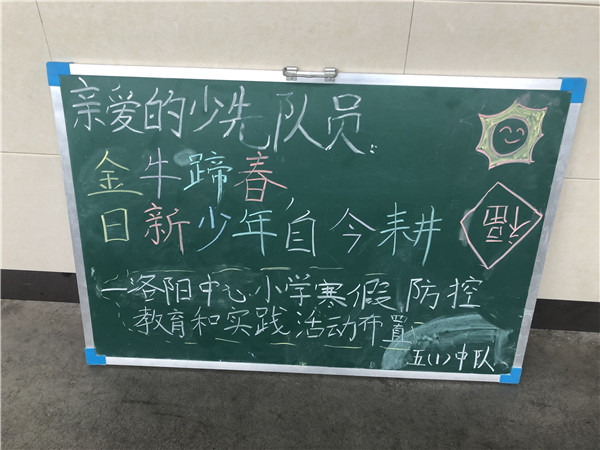 亲爱的少先队员：
金牛蹄春，
日新少年自今耕
福
一洛阳中心小学寒假防控
教育和实践活动布置
五(1)中队